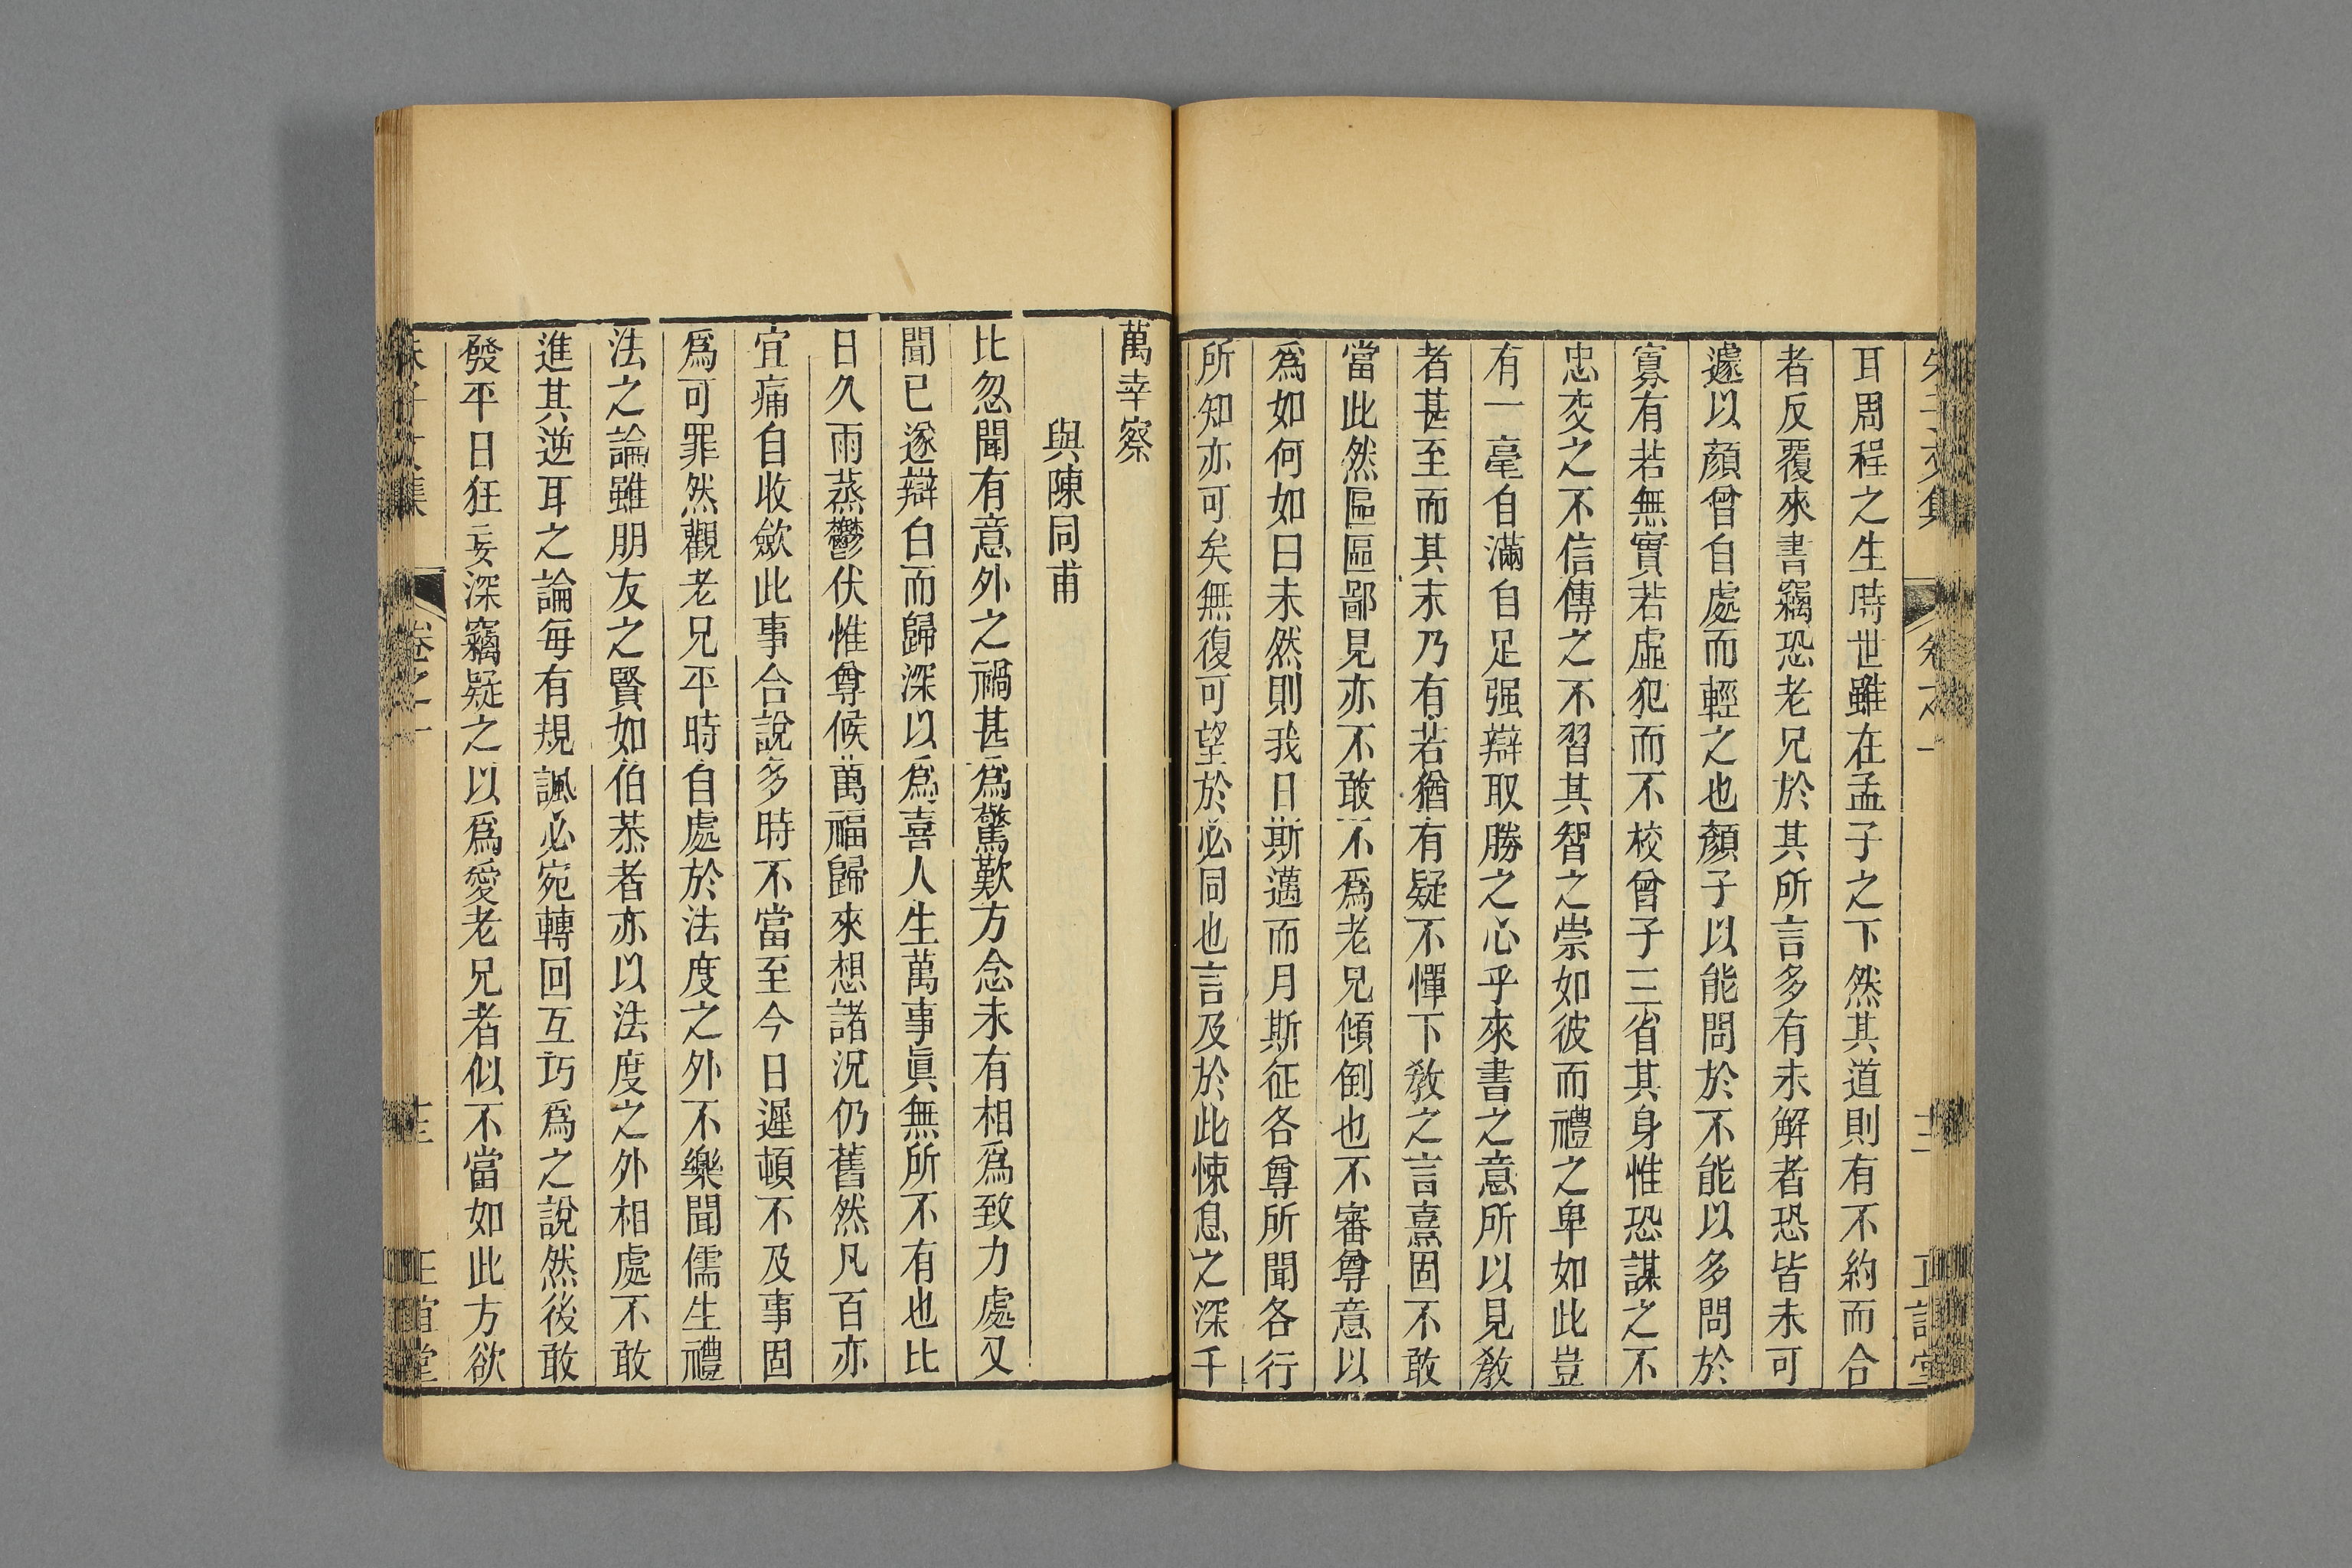 耳周程之生時世雖在孟子之下然其道則有不約而合
者反覆來書竊恐老兄於其所言多有未解者恐皆未可
遽以顏曾自處而輕之也顏子以能問於不能以多問於
寡有若無實若虛犯而不校曾子三省其身惟恐謀之不
忠交之不信傳之不習其智之崇如彼而禮之卑如此豈
有一毫自滿自足强辯取勝之心乎來書之意所以見敎
者甚至而其末乃有若猶有疑不憚下敎之言熹固不敢
當此然區區鄙見亦不敢不爲老兄傾倒也不審尊意以
爲如何如曰未然則我日斯邁而月斯征各尊所聞各行
所知亦可矣無復可望於必同也言及於此悚息之深千
萬幸察
與陳同甫
比忽聞有意外之禍甚爲驚歎方念未有相爲致力處又
聞已遂辯白而歸深以爲喜人生萬事眞無所不有也比
日久雨蒸鬱伏惟尊候萬福歸來想諸況仍舊然凡百亦
宜痛自收歛此事合說多時不當至今日遲頓不及事固
爲可罪然觀老兄平時自處於法度之外不樂聞儒生禮
法之論雖朋友之賢如伯恭者亦以法度之外相處不敢
進其逆耳之論每有規諷必宛轉回互巧爲之說然後敢
發平日狂妄深竊疑之以爲愛老兄者似不當如此方欲